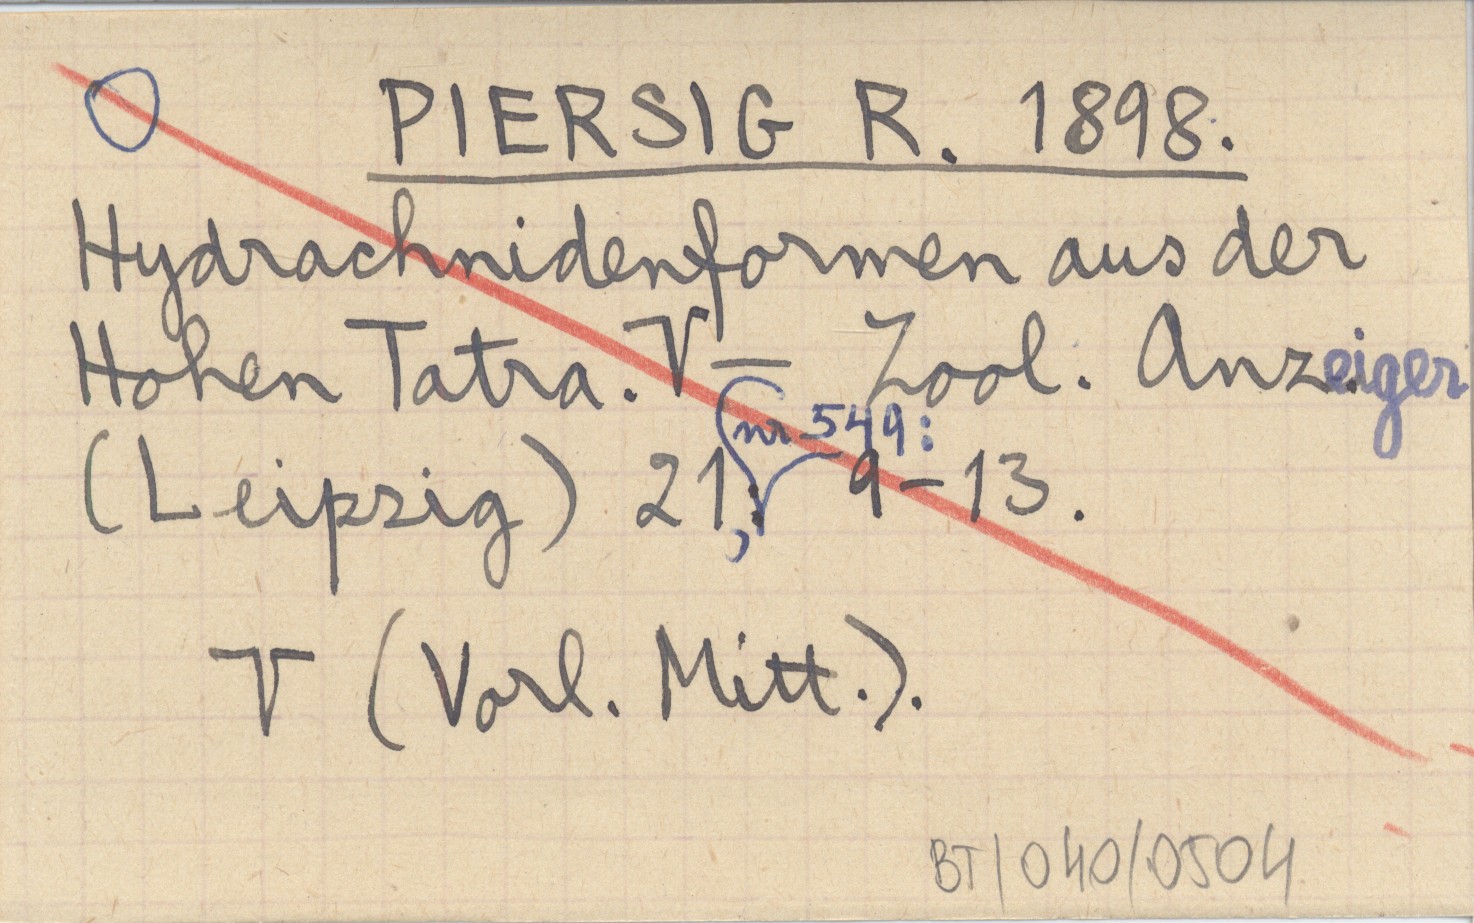 PIERSIG R. 1898.
Hydrachnidenformen aus der
Hohen Tatra. V — Zool. Anzeiger
nr 549:
(Leipzig) 21, : 9-13.
V (Vorl. Mitt.).
BT/040/0504